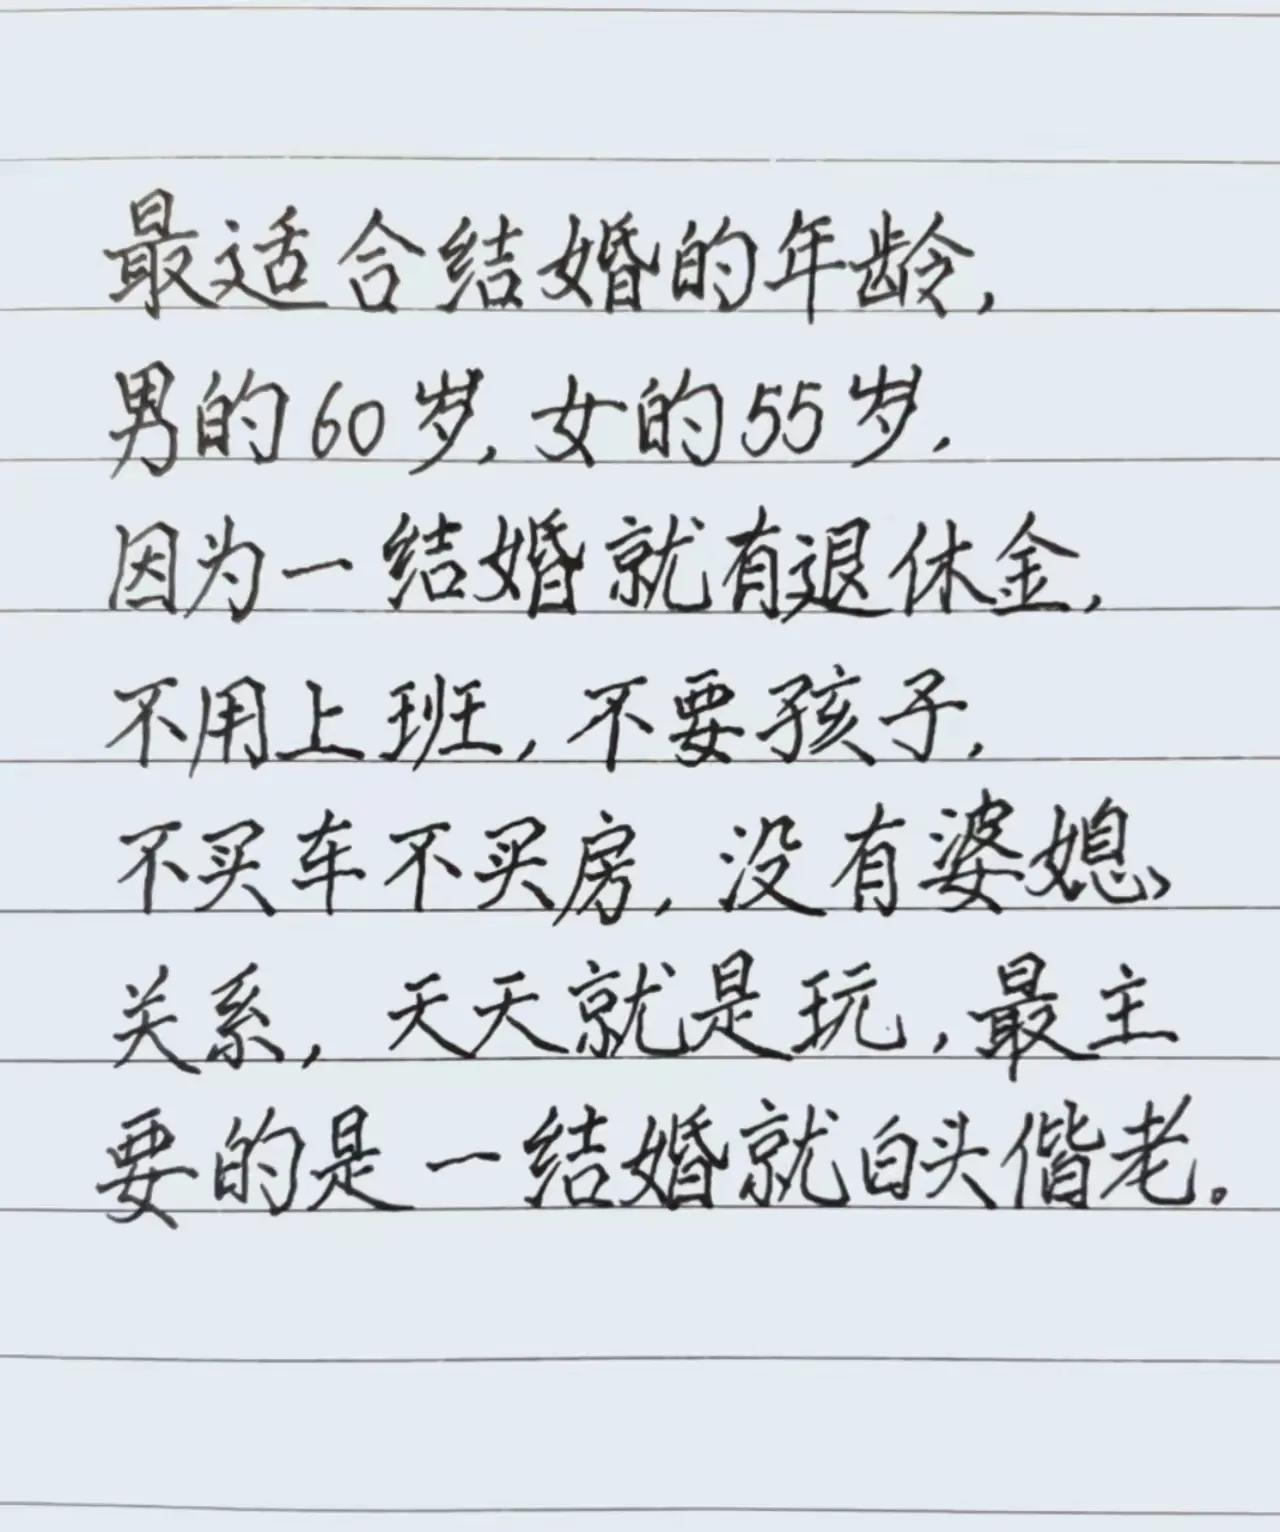 最适合结婚的年龄,
男的60岁,女的55岁,
因为一结婚就有退休金,
不用上班,不要孩子,
不买车不买房,没有婆媳、
关系,天天就是玩,最主
要的是一结婚就白头偕老。